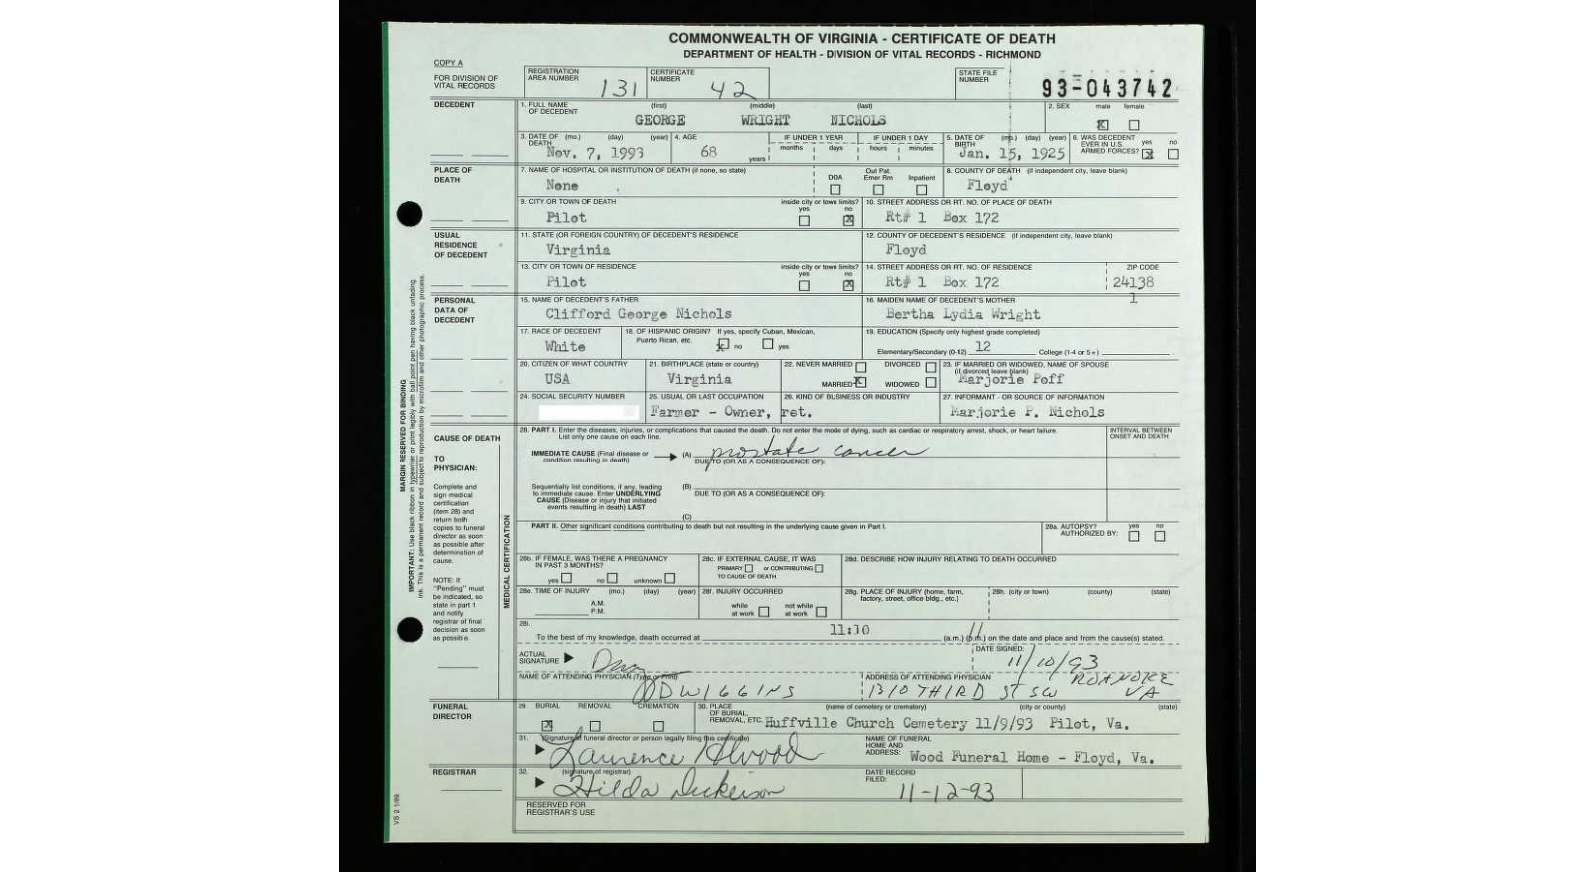 COMMONWEALTH OF VIRGINIA - CERTIFICATE OF DEATH
DEPARTMENT OF HEALTH - DIVISION OF VITAL RECORDS - RICHMOND
COPY A
FOR DIVISION OF VITAL RECORDS
REGISTRATION AREA NUMBER 131
CERTIFICATE NUMBER 42
STATE FILE NUMBER 93-043742
DECEDENT
1. FULL NAME OF DECEDENT (first) (middle) (last)
GEORGE WRIGHT NICHOLS
2. SEX male female
X
3. DATE OF DEATH (mo.) (day) (year) Nov. 7, 1993
4. AGE 68 years
IF UNDER 1 YEAR months days
IF UNDER 1 DAY hours minutes
5. DATE OF BIRTH (mo.) (day) (year) Jan. 15, 1925
6. WAS DECEDENT EVER IN U.S. ARMED FORCES? yes no
X
PLACE OF DEATH
7. NAME OF HOSPITAL OR INSTITUTION OF DEATH (if none, so state)
None
DOA Out Pat. Emer Rm Inpatient
8. COUNTY OF DEATH (if independent city, leave blank)
Floyd
9. CITY OR TOWN OF DEATH inside city or town limits? yes no
Pilot X
10. STREET ADDRESS OR RT. NO. OF PLACE OF DEATH
Rt# 1 Box 172
USUAL RESIDENCE OF DECEDENT
11. STATE (OR FOREIGN COUNTRY) OF DECEDENT'S RESIDENCE
Virginia
12. COUNTY OF DECEDENT'S RESIDENCE (if independent city, leave blank)
Floyd
13. CITY OR TOWN OF RESIDENCE inside city or town limits? yes no
Pilot X
14. STREET ADDRESS OR RT. NO. OF RESIDENCE ZIP CODE
Rt# 1 Box 172 24138
1
PERSONAL DATA OF DECEDENT
15. NAME OF DECEDENT'S FATHER
Clifford George Nichols
16. MAIDEN NAME OF DECEDENT'S MOTHER
Bertha Lydia Wright
17. RACE OF DECEDENT
White
18. OF HISPANIC ORIGIN? If yes, specify Cuban, Mexican, Puerto Rican, etc.
X no yes
19. EDUCATION (Specify only highest grade completed)
Elementary/Secondary (0-12) 12 College (1-4 or 5+)
20. CITIZEN OF WHAT COUNTRY
USA
21. BIRTHPLACE (state or country)
Virginia
22. NEVER MARRIED DIVORCED
MARRIED X WIDOWED
23. IF MARRIED OR WIDOWED, NAME OF SPOUSE (if divorced leave blank)
Marjorie Poff
24. SOCIAL SECURITY NUMBER
25. USUAL OR LAST OCCUPATION
Farmer - Owner, ret.
26. KIND OF BUSINESS OR INDUSTRY
27. INFORMANT - OR SOURCE OF INFORMATION
Marjorie P. Nichols
CAUSE OF DEATH
TO PHYSICIAN:
Complete and sign medical certification (item 28) and return both copies to funeral director as soon as possible after determination of cause.
NOTE: If "Pending" must be indicated, so state in part 1 and notify registrar of final decision as soon as possible.
MEDICAL CERTIFICATION
28. PART I. Enter the diseases, injuries, or complications that caused the death. Do not enter the mode of dying, such as cardiac or respiratory arrest, shock, or heart failure.
List only one cause on each line.
INTERVAL BETWEEN ONSET AND DEATH
IMMEDIATE CAUSE (Final disease or condition resulting in death) (A) prostate cancer
DUE TO (OR AS A CONSEQUENCE OF):
Sequentially list conditions, if any, leading to immediate cause. Enter UNDERLYING CAUSE (Disease or injury that initiated events resulting in death) LAST
(B)
DUE TO (OR AS A CONSEQUENCE OF):
(C)
PART II. Other significant conditions contributing to death but not resulting in the underlying cause given in Part I.
28a. AUTOPSY? AUTHORIZED BY: yes no
28b. IF FEMALE, WAS THERE A PREGNANCY IN PAST 3 MONTHS?
yes no unknown
28c. IF EXTERNAL CAUSE, IT WAS
PRIMARY or CONTRIBUTING
TO CAUSE OF DEATH
28d. DESCRIBE HOW INJURY RELATING TO DEATH OCCURRED
28e. TIME OF INJURY (mo.) (day) (year)
A.M.
P.M.
28f. INJURY OCCURRED
while at work not while at work
28g. PLACE OF INJURY (home, farm, factory, street, office bldg., etc.)
28h. (city or town) (county) (state)
28i.
To the best of my knowledge, death occurred at 11:10 (a.m.) (p.m.) on the date and place and from the cause(s) stated.
ACTUAL SIGNATURE
DATE SIGNED: 11/10/93
NAME OF ATTENDING PHYSICIAN (Type or Print)
ADDRESS OF ATTENDING PHYSICIAN
1310 THIRD ST SW ROANOKE VA
FUNERAL DIRECTOR
29. BURIAL REMOVAL CREMATION
X
30. PLACE OF BURIAL, REMOVAL, ETC. (name of cemetery or crematory) (city or county) (state)
Huffville Church Cemetery 11/9/93 Pilot, Va.
31. (Signature of funeral director or person legally filing this certificate)
NAME OF FUNERAL HOME AND ADDRESS: Wood Funeral Home - Floyd, Va.
REGISTRAR
32. (signature of registrar)
Hilda Dickerson
DATE RECORD FILED: 11-12-93
RESERVED FOR REGISTRAR'S USE
MARGIN RESERVED FOR BINDING
IMPORTANT: Use black ribbon in typewriter or print legibly with ball point pen having black unfading
ink. This is a permanent record and subject to reproduction by microfilm and other photographic process.
VS 2 1/89